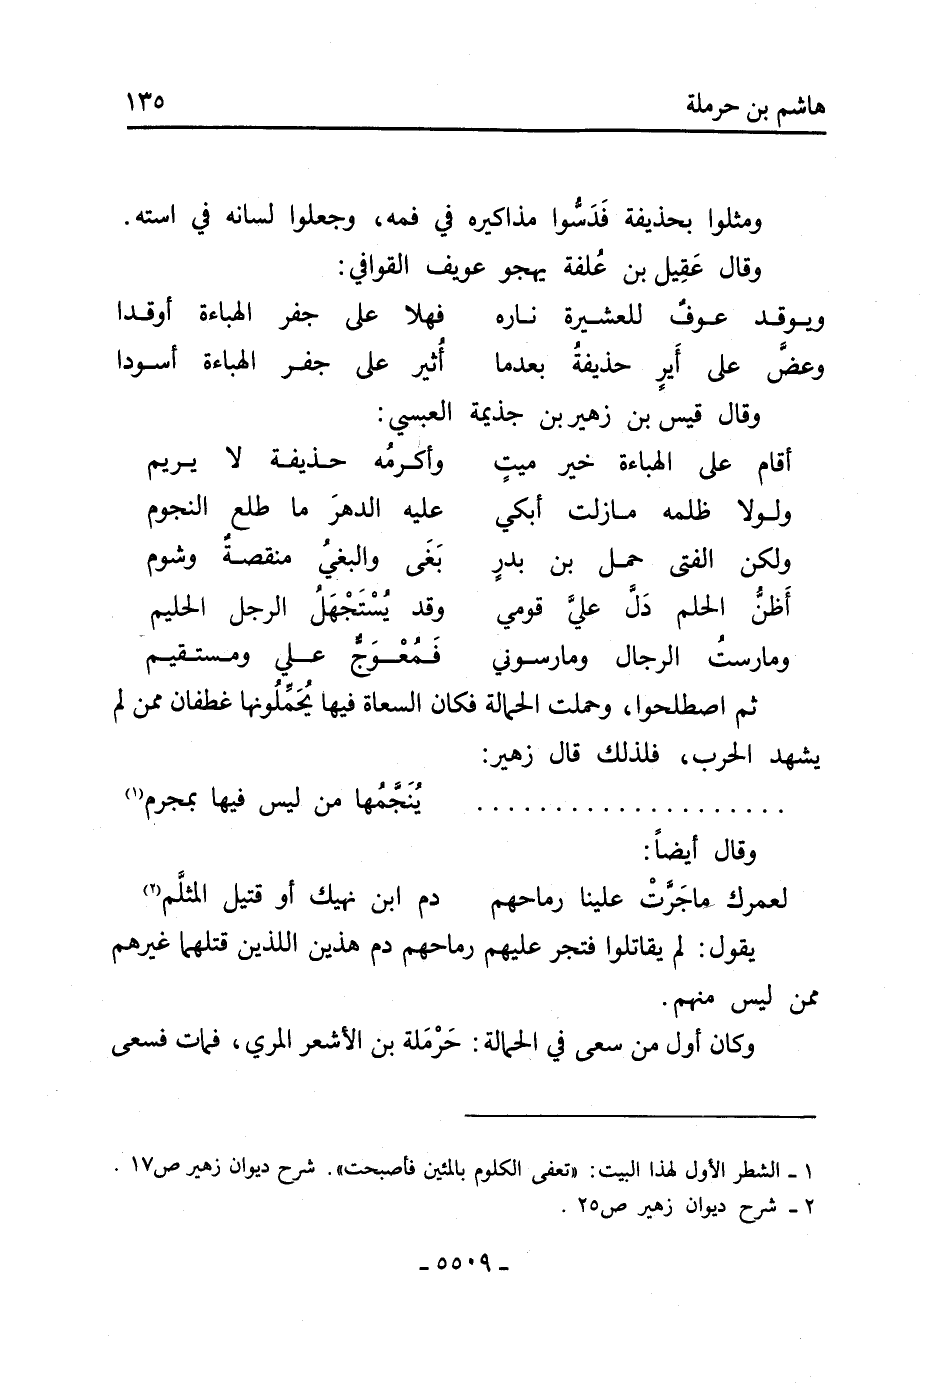 هاشم بن حرملة ١٣٥
ومثلوا بحذيفة فَدَسُّوا مذاكيره في فمه، وجعلوا لسانه في استه.
وقال عَقِيل بن عُلفة يهجو عويف القوافي:
ويوقد عوفٌ للعشيرة ناره فهلا على جفر الهباءة أوقدا
وعضَّ على أَيرٍ حذيفةُ بعدما أُثير على جفر الهباءة أسودا
وقال قيس بن زهير بن جذيمة العبسي:
أقام على الهباءة خير ميتٍ وأكرمُه حذيفة لا يريم
ولولا ظلمه مازلت أبكي عليه الدهرَ ما طلع النجوم
ولكن الفتى حمل بن بدرٍ بَغَى والبغيُ منقصةٌ وشوم
أَظنُّ الحلم دَلَّ عليَّ قومي وقد يُسْتَجْهَلُ الرجل الحليم
ومارستُ الرجال ومارسوني فَمُعْوَجٌّ علي ومستقيم
ثم اصطلحوا، وحملت الحمالة فكان السعاة فيها يُحَمِّلُونها غطفان ممن لم
يشهد الحرب، فلذلك قال زهير:
. . . . . . . . . . . . . . . . . . . . يُنَجِّمُها من ليس فيها بمجرم(١)
وقال أيضاً:
لعمرك ماجَرَّتْ علينا رماحهم دم ابن نهيك أو قتيل المثلَّم(٢)
يقول: لم يقاتلوا فتجر عليهم رماحهم دم هذين اللذين قتلهما غيرهم
ممن ليس منهم.
وكان أول من سعى في الحمالة: حَرْمَلة بن الأشعر المري، فمات فسعى
١ ـ الشطر الأول لهذا البيت: «تعفى الكلوم بالمئين فأصبحت». شرح ديوان زهير ص١٧ .
٢ ـ شرح ديوان زهير ص٢٥ .
ـ ٥٥٠٩ ـ